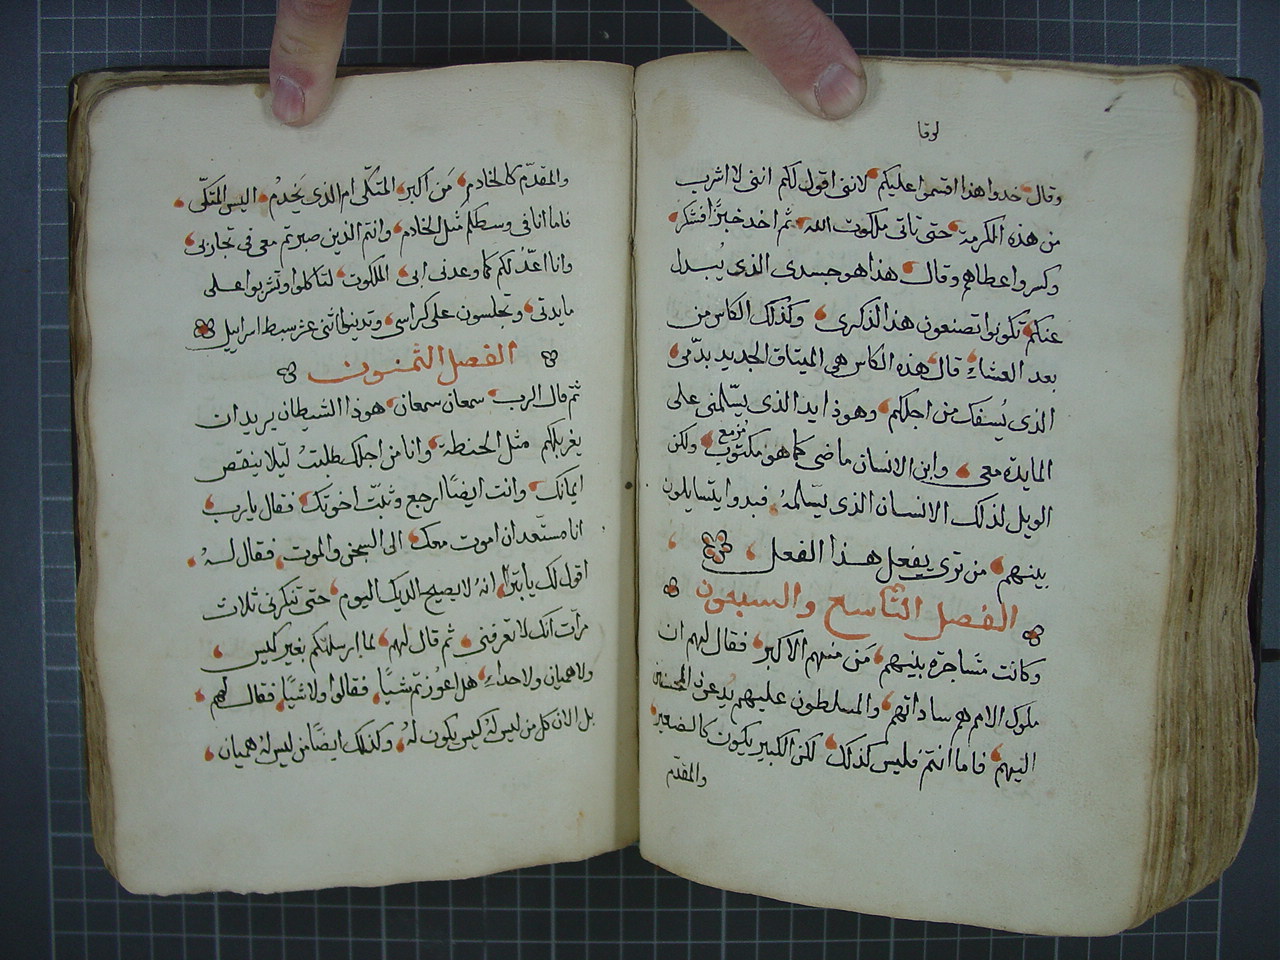 لوقا
وقال خدوا هذا اقتسموا عليكم لانني اقول لكم انني لا اشرب
من هذه الكرمة حتى تاتي ملكوت الله ثم اخد خبزًا فشكر
وكسر واعطاهم وقال هذا هو جسدي الذي يُبدل
عنكم تكونوا تصنعون هذا لذكري وكذلك الكاس من
بعد العشاء قال هذه الكاس هي الميتاق الجديد بدمي
الذي يُسفك من اجلكم وهوذا يد الذي يسّلمني على
المايدة معي وابن الانسان ماضي كما هو مكتوب مُزمع ولكن
الويل لذلك الانسان الذي يسّلمهُ فبدوا يتسايلون
بينهم من تري يفعل هذا الفعل
الفصل التاسع والسبعون
وكانت مشاجرة بينهم مَن منهم الاكبر فقال لهم ان
ملوك الامم هم ساداتهم والمسلطون عليهم يُدعون المحسنين
اليهم فاما انتم فليس كذلك لكن الكبير يكون كالصغير
والمقدّم
والمقدّم كالخادم مَن اكبر المتكّي ام الذي يَخدِم اليس المتكّي
فاما انا في وسطكم مثل الخادم وانتم الذين صبرتم معي في تجاربي
وانا اعدُّ لكم كما وعدني ابي الملكوت لتاكلوا وتشربوا على
مايدتي وتجلسون على كراسي وتدينوا اتني عشر سبط اسراييل
الفصل الثمنون
ثم قال الرب سمعان سمعان هوذا الشيطان يريد ان
يغربلكم مثل الحنطة وانا من اجلك طلبتُ ليلا ينقص
ايمانك وانت ايضًا ارجع وثبّت اخوتك فقال يا رب
انا مستعد ان اموت معك الى السجن والموت فقال لهُ
اقول لك يا بترا انهُ لا يصيح الديك اليوم حتى تنكرني ثلات
مرّات انك لا تعرفني ثم قال لهم لما ارسلتكم بغير كيس
ولا هميان ولا حداء هل اعوزتم شيًا فقالوا ولا شيًا فقال لهم
بل الان كل من ليس لهُ كيس يكون لهُ وكذلك ايضًا من ليس لهُ هميان